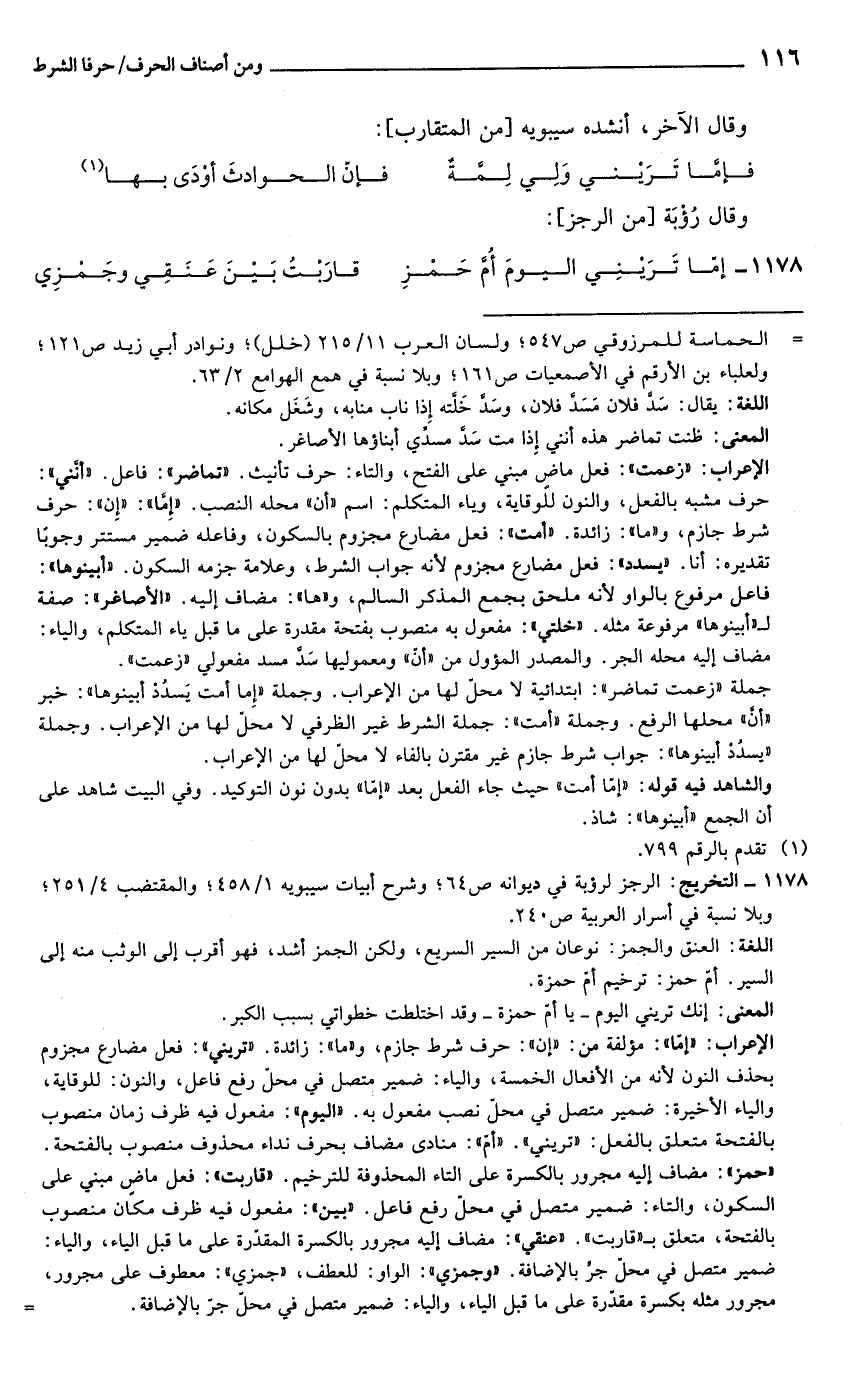 ١١٦ ومن أصناف الحرف/ حرفا الشرط
وقال الآخر، أنشده سيبويه [من المتقارب]:
فإمَّا تَرَيْني وَلِي لِمَّةٌ فإنّ الحوادثَ أوْدَى بها(١)
وقال رُؤْبَة [من الرجز]:
١١٧٨ - إمّا تَرَيْنِي اليومَ أُمَّ حَمْزِ قارَبْتُ بَيْنَ عَنَقِي وجَمْزِي
= الحماسة للمرزوقي ص٥٤٧؛ ولسان العرب ٢١٥/١١ (خلل)؛ ونوادر أبي زيد ص١٢١؛
ولعلباء بن الأرقم في الأصمعيات ص١٦١؛ وبلا نسبة في همع الهوامع ٦٣/٢.
اللغة: يقال: سَدَّ فلان مَسَدَّ فلان، وسَدَّ خَلَّته إذا ناب منابه، وشَغَل مكانه.
المعنى: ظنت تماضر هذه أنني إذا مت سَدَّ مسدِّي أبناؤها الأصاغر.
الإعراب: «زعمت»: فعل ماضٍ مبني على الفتح، والتاء: حرف تأنيث. «تماضر»: فاعل. «أنَّني»:
حرف مشبه بالفعل، والنون للوقاية، وياء المتكلم: اسم «أن» محله النصب. «إمَّا»: «إن»: حرف
شرط جازم، و«ما»: زائدة. «أمت»: فعل مضارع مجزوم بالسكون، وفاعله ضمير مستتر وجوبًا
تقديره: أنا. «يسدد»: فعل مضارع مجزوم لأنه جواب الشرط، وعلامة جزمه السكون. «أبينوها»:
فاعل مرفوع بالواو لأنه ملحق بجمع المذكر السالم، و«ها»: مضاف إليه. «الأصاغر»: صفة
لـ«أبينوها» مرفوعة مثله. «خلتي»: مفعول به منصوب بفتحة مقدرة على ما قبل ياء المتكلم، والياء:
مضاف إليه محله الجر. والمصدر المؤول من «أنّ» ومعموليها سَدَّ مسد مفعولي «زعمت».
جملة «زعمت تماضر»: ابتدائية لا محلّ لها من الإعراب. وجملة «إما أمت يَسدُدْ أبينوها»: خبر
«أنَّ» محلها الرفع. وجملة «أمت»: جملة الشرط غير الظرفي لا محلّ لها من الإعراب. وجملة
«يسدُدْ أبينوها»: جواب شرط جازم غير مقترن بالفاء لا محلّ لها من الإعراب.
والشاهد فيه قوله: «إمّا أمت» حيث جاء الفعل بعد «إمّا» بدون نون التوكيد. وفي البيت شاهد على
أن الجمع «أبينوها»: شاذ.
(١) تقدم بالرقم ٧٩٩.
١١٧٨ - التخريج: الرجز لرؤبة في ديوانه ص٦٤؛ وشرح أبيات سيبويه ٤٥٨/١؛ والمقتضب ٢٥١/٤؛
وبلا نسبة في أسرار العربية ص٢٤٠.
اللغة: العنق والجمز: نوعان من السير السريع، ولكن الجمز أشد، فهو أقرب إلى الوثب منه إلى
السير. أمّ حمز: ترخيم أمّ حمزة.
المعنى: إنك تريني اليوم - يا أمّ حمزة - وقد اختلطت خطواتي بسبب الكبر.
الإعراب: «إمّا»: مؤلفة من: «إن»: حرف شرط جازم، و«ما»: زائدة. «تريني»: فعل مضارع مجزوم
بحذف النون لأنه من الأفعال الخمسة، والياء: ضمير متصل في محلّ رفع فاعل، والنون: للوقاية،
والياء الأخيرة: ضمير متصل في محلّ نصب مفعول به. «اليوم»: مفعول فيه ظرف زمان منصوب
بالفتحة متعلق بالفعل: «تريني». «أمّ»: منادى مضاف بحرف نداء محذوف منصوب بالفتحة.
«حمز»: مضاف إليه مجرور بالكسرة على التاء المحذوفة للترخيم. «قاربت»: فعل ماضٍ مبني على
السكون، والتاء: ضمير متصل في محلّ رفع فاعل. «بين»: مفعول فيه ظرف مكان منصوب
بالفتحة، متعلق بـ«قاربت». «عنقي»: مضاف إليه مجرور بالكسرة المقدّرة على ما قبل الياء، والياء:
ضمير متصل في محلّ جرّ بالإضافة. «وجمزي»: الواو: للعطف، «جمزي»: معطوف على مجرور،
مجرور مثله بكسرة مقدّرة على ما قبل الياء، والياء: ضمير متصل في محلّ جرّ بالإضافة. =